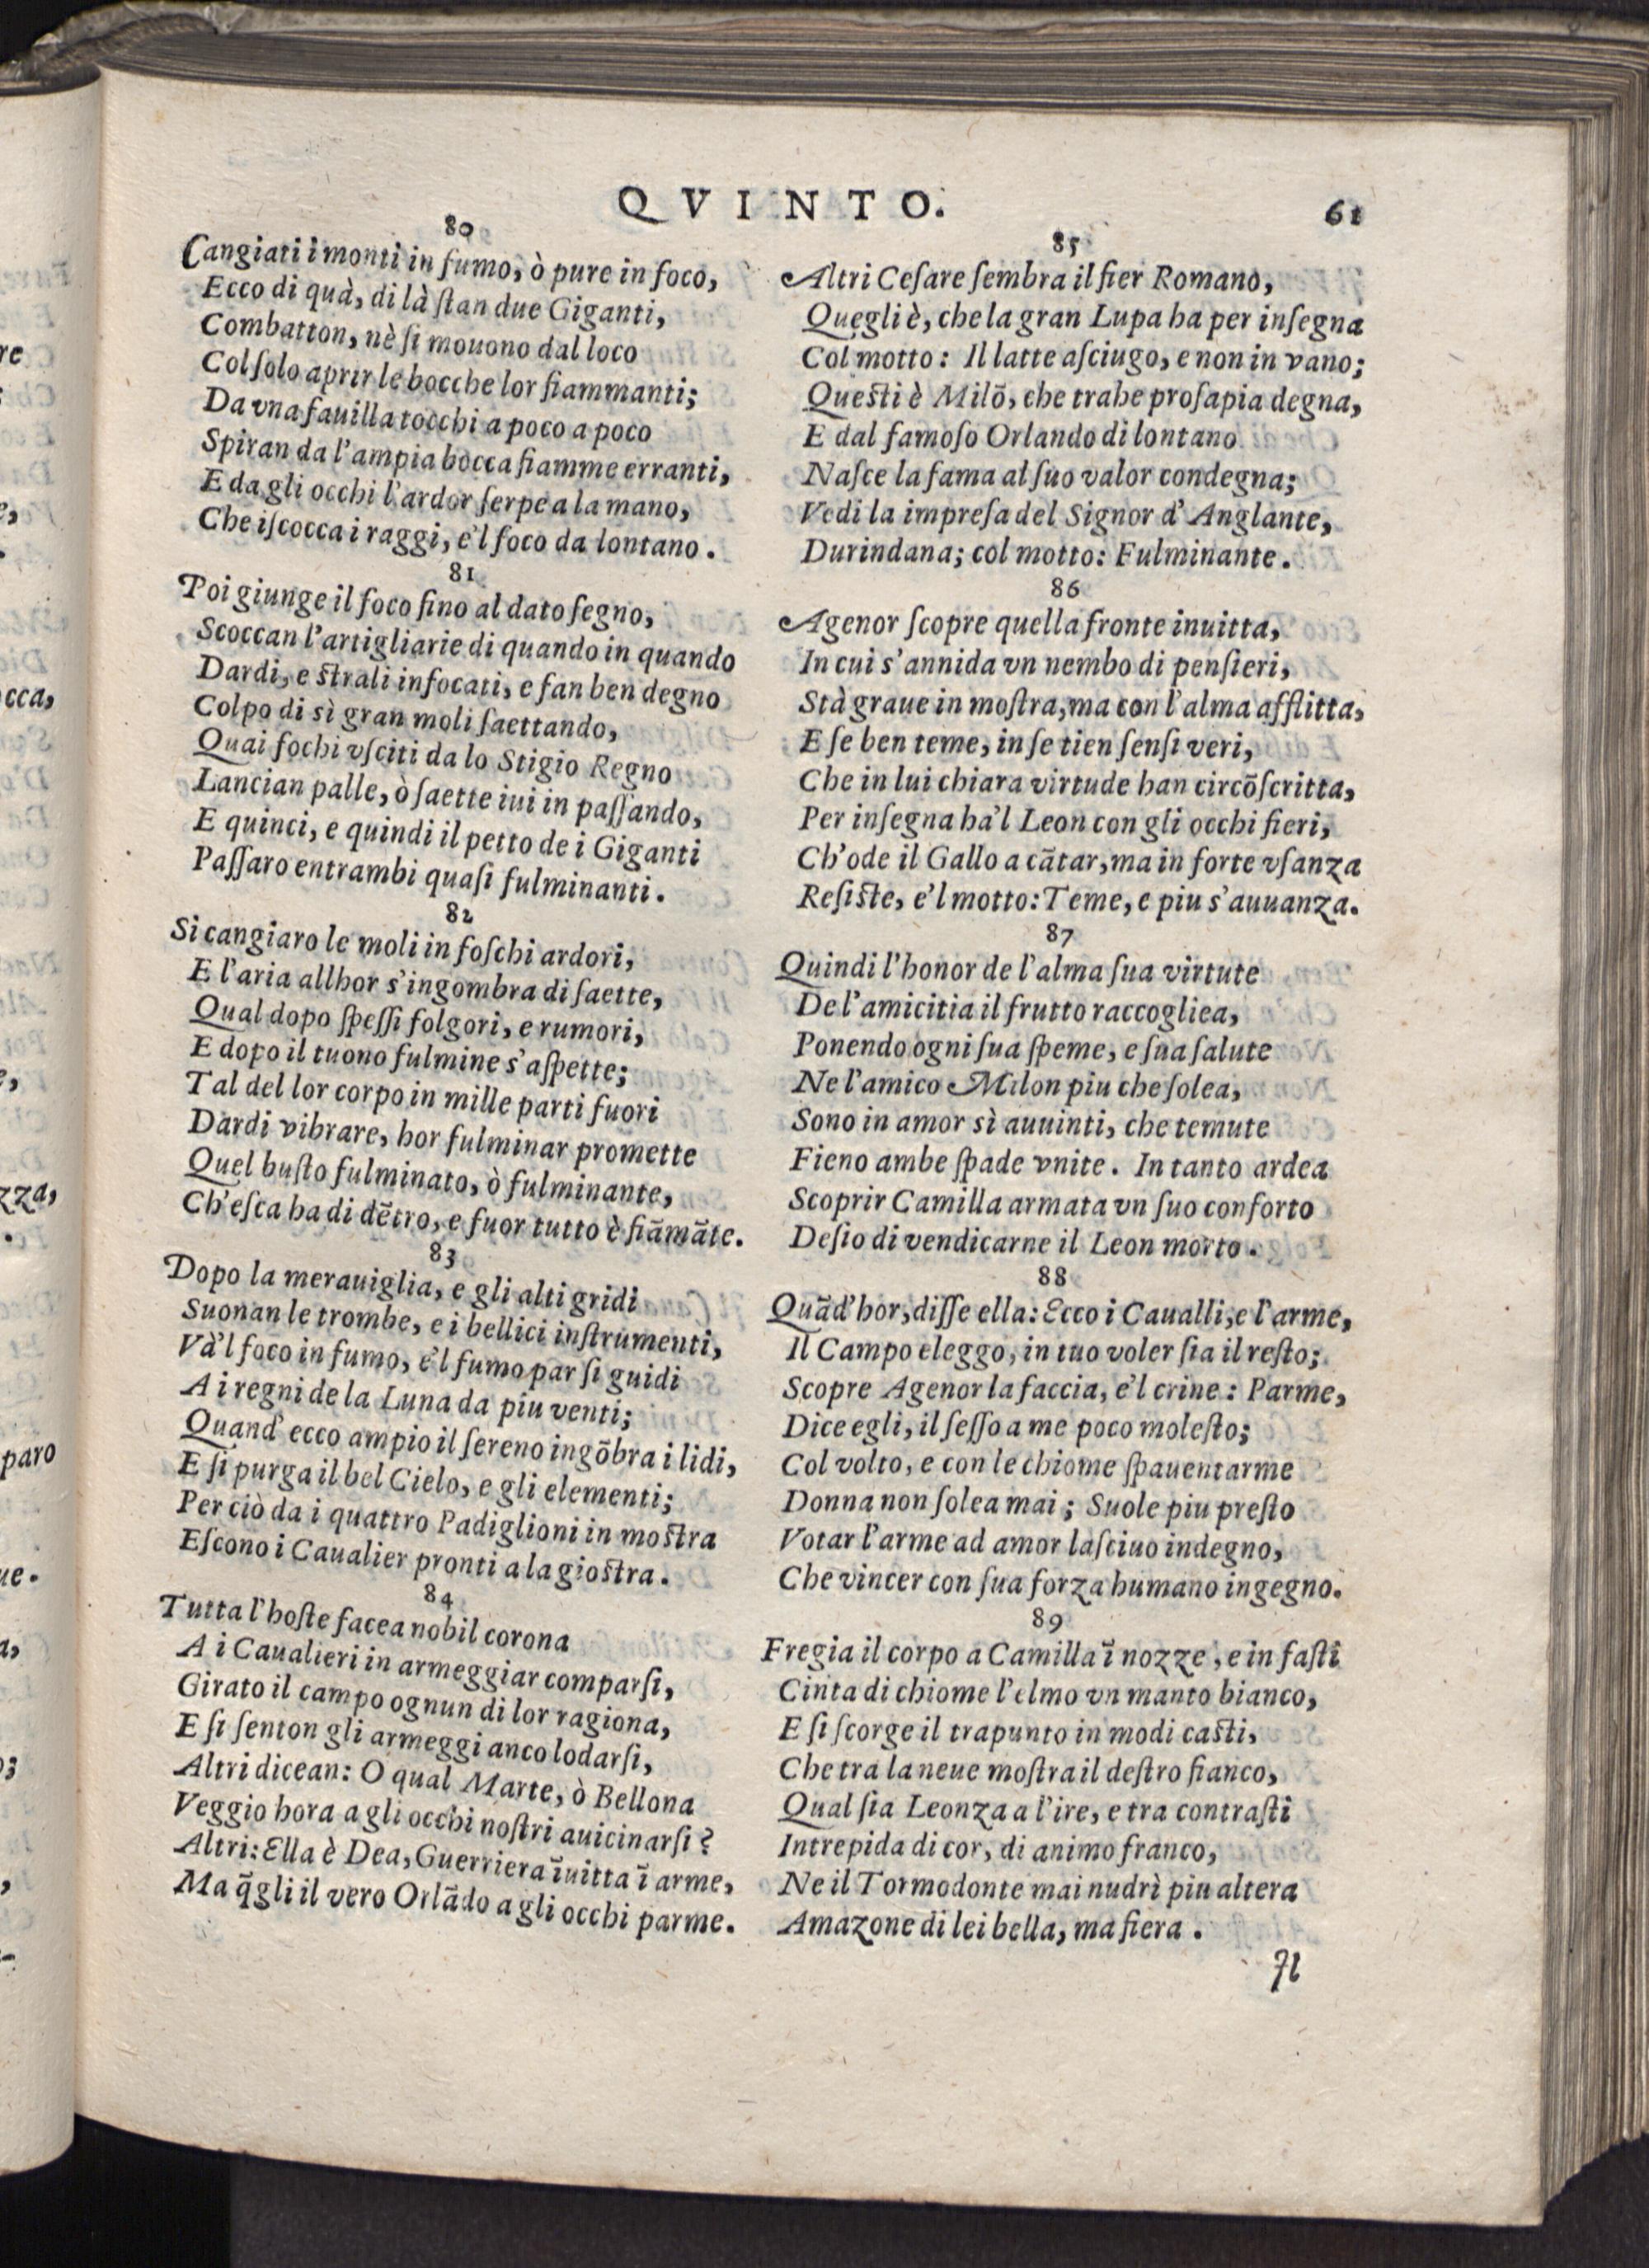 QVINTO.
61
80
Cangiati i monti in fumo, ò pure in foco,
Ecco di quà, di là ſtan due Giganti,
Combatton, nè ſi mouono dal loco
Col ſolo aprir le bocche lor fiammanti;
Da vna fauilla tocchi a poco a poco
Spiran da l'ampia bocca fiamme erranti,
E da gli occhi l'ardor ſerpe a la mano,
Che iſcocca i raggi, e'l foco da lontano.
81
Poi giunge il foco fino al dato ſegno,
Scoccan l'artigliarie di quando in quando
Dardi, e ſtrali infocati, e fan ben degno
Colpo di sì gran moli ſaettando,
Quai fochi vſciti da lo Stigio Regno
Lancian palle, ò ſaette iui in paſſando,
E quinci, e quindi il petto de i Giganti
Paſſaro entrambi quaſi fulminanti.
82
Si cangiaro le moli in foſchi ardori,
E l'aria allhor s'ingombra di ſaette,
Qual dopo ſpeſſi folgori, e rumori,
E dopo il tuono fulmine s'aſpette;
Tal del lor corpo in mille parti fuori
Dardi vibrare, hor fulminar promette
Quel buſto fulminato, ò fulminante,
Ch'eſca ha di dẽtro, e fuor tutto è fiãmãte.
83
Dopo la merauiglia, e gli alti gridi
Suonan le trombe, e i bellici inſtrumenti,
Và'l foco in fumo, e'l fumo par ſi guidi
A i regni de la Luna da piu venti;
Quand' ecco ampio il ſereno ingõbra i lidi,
E ſi purga il bel Cielo, e gli elementi;
Per ciò da i quattro Padiglioni in moſtra
Eſcono i Caualier pronti a la gioſtra.
84
Tutta l'hoſte facea nobil corona
A i Caualieri in armeggiar comparſi,
Girato il campo ognun di lor ragiona,
E ſi ſenton gli armeggi anco lodarſi,
Altri dicean: O qual Marte, ò Bellona
Veggio hora a gli occhi noſtri auicinarſi?
Altri: Ella è Dea, Guerriera ĩuitta ĩ arme,
Ma q̃gli il vero Orlãdo a gli occhi parme.
85
Altri Ceſare ſembra il fier Romano,
Quegli è, che la gran Lupa ha per inſegna
Col motto: Il latte aſciugo, e non in vano;
Queſti è Milõ, che trahe proſapia degna,
E dal famoſo Orlando di lontano
Naſce la fama al ſuo valor condegna;
Vedi la impreſa del Signor d'Anglante,
Durindana; col motto: Fulminante.
86
Agenor ſcopre quella fronte inuitta,
In cui s'annida vn nembo di penſieri,
Stà graue in moſtra, ma con l'alma afflitta,
E ſe ben teme, in ſe tien ſenſi veri,
Che in lui chiara virtude han circõſcritta,
Per inſegna ha'l Leon con gli occhi fieri,
Ch'ode il Gallo a cãtar, ma in forte vſanza
Reſiſte, e'l motto: Teme, e piu s'auuanza.
87
Quindi l'honor de l'alma ſua virtute
De l'amicitia il frutto raccogliea,
Ponendo ogni ſua ſpeme, e ſua ſalute
Ne l'amico Milon piu che ſolea,
Sono in amor sì auuinti, che temute
Fieno ambe ſpade vnite. In tanto ardea
Scoprir Camilla armata vn ſuo conforto
Deſio di vendicarne il Leon morto.
88
Quãd'hor, diſſe ella: Ecco i Caualli, e l'arme,
Il Campo eleggo, in tuo voler ſia il reſto;
Scopre Agenor la faccia, e'l crine: Parme,
Dice egli, il ſeſſo a me poco moleſto;
Col volto, e con le chiome ſpauentarme
Donna non ſolea mai; Suole piu preſto
Votar l'arme ad amor laſciuo indegno,
Che vincer con ſua forza humano ingegno.
89
Fregia il corpo a Camilla ĩ nozze, e in faſti
Cinta di chiome l'elmo vn manto bianco,
E ſi ſcorge il trapunto in modi caſti,
Che tra la neue moſtra il deſtro fianco,
Qual ſia Leonza a l'ire, e tra contraſti
Intrepida di cor, di animo franco,
Ne il Tormodonte mai nudrì piu altera
Amazone di lei bella, ma fiera.
Il